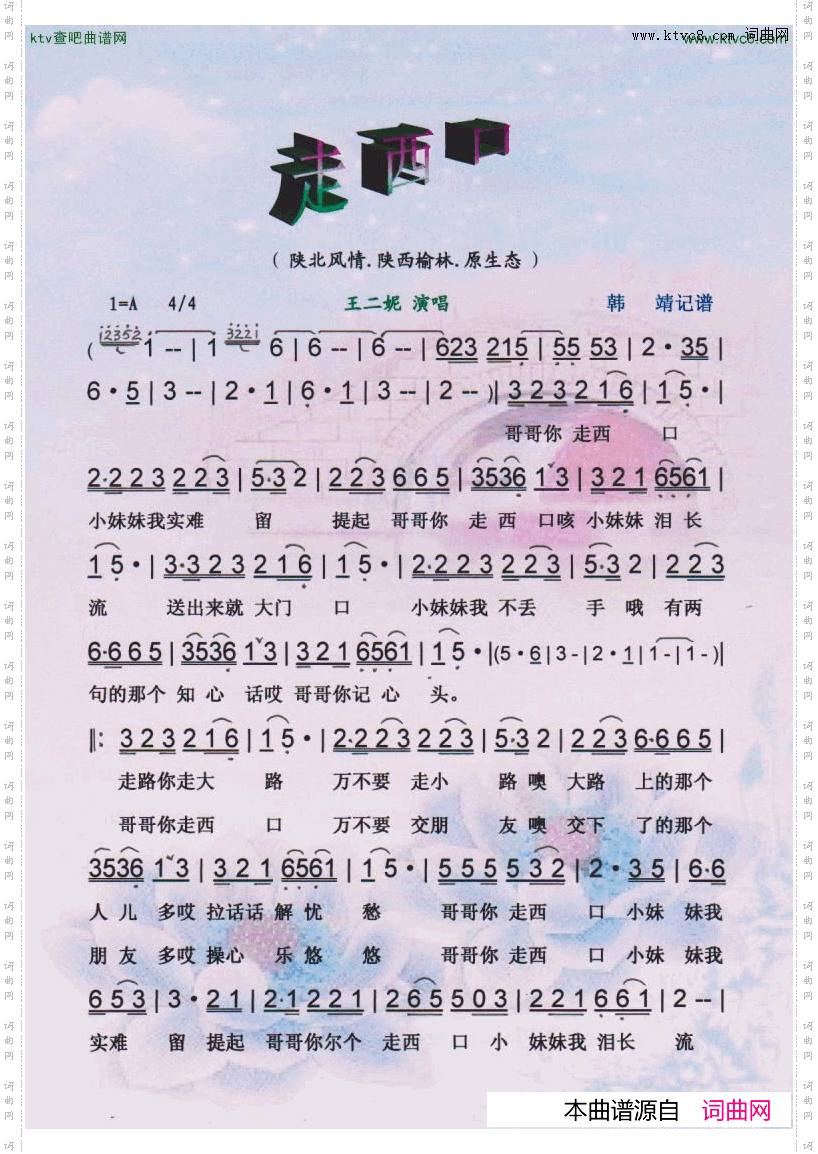 ktv查吧曲谱网
www.ktvc8.com 词曲网
走西口
( 陕北风情.陕西榆林.原生态 )
1=A 4/4 王二妮 演唱 韩 靖记谱
( i2352 1 -- | 1 3221 6 | 6 -- | 6 -- | 623 215 | 55 53 | 2 · 35 |
6 · 5 | 3 -- | 2 · 1 | 6 · 1 | 3 -- | 2 -- )| 3 2 3 2 1 6 | 1 5 · |
哥哥你 走西 口
2·2 2 3 2 2 3 | 5·3 2 | 2 2 3 6 6 5 | 3536 1 3 | 3 2 1 6561 |
小妹妹我实难 留 提起 哥哥你 走 西 口咳 小妹妹 泪 长
1 5 · | 3·3 2 3 2 1 6 | 1 5 · | 2·2 2 3 2 2 3 | 5·3 2 | 2 2 3
流 送出来就 大门 口 小妹妹我 不丢 手 哦 有两
6·6 6 5 | 3536 1 3 | 3 2 1 6561 | 1 5 · |(5 · 6 | 3 - | 2 · 1 | 1 - | 1 - )|
句的那个 知 心 话哎 哥哥你记 心 头。
‖: 3 2 3 2 1 6 | 1 5 · | 2·2 2 3 2 2 3 | 5·3 2 | 2 2 3 6·6 6 5 |
走路你走大 路 万不要 走小 路 噢 大路 上的那个
哥哥你走西 口 万不要 交朋 友 噢 交下 了的那个
3536 1 3 | 3 2 1 6561 | 1 5 · | 5 5 5 5 3 2 | 2 · 3 5 | 6·6
人 儿 多哎 拉话话 解 忧 愁 哥哥你 走西 口 小妹 妹我
朋 友 多哎 操心 乐 悠 悠 哥哥你 走西 口 小妹 妹我
6 5 3 | 3 · 2 1 | 2·1 2 2 1 | 2 6 5 5 0 3 | 2 2 1 6 6 1 | 2 -- |
实难 留 提起 哥哥你尔个 走西 口 小 妹妹我 泪长 流
本曲谱源自 词曲网